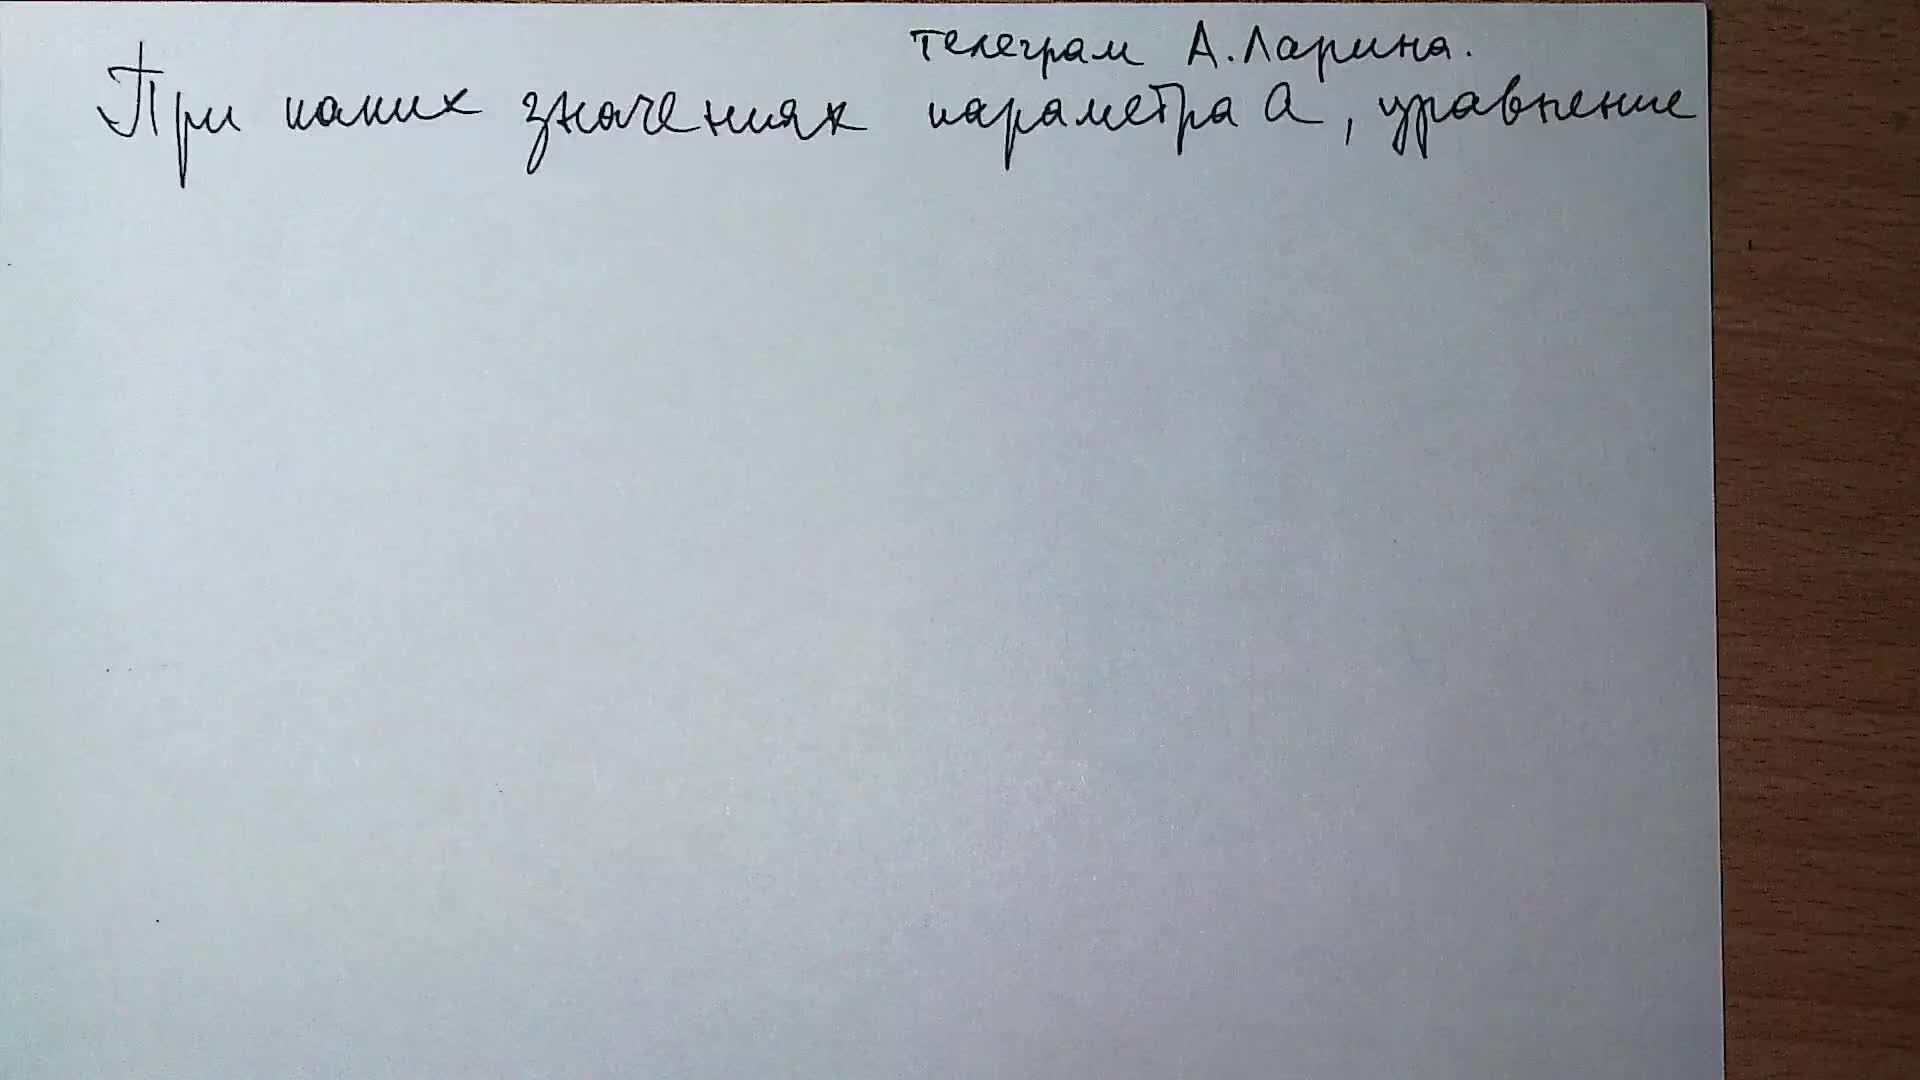 телеграм А. Ларина.
При каких значениях параметра а, уравнение